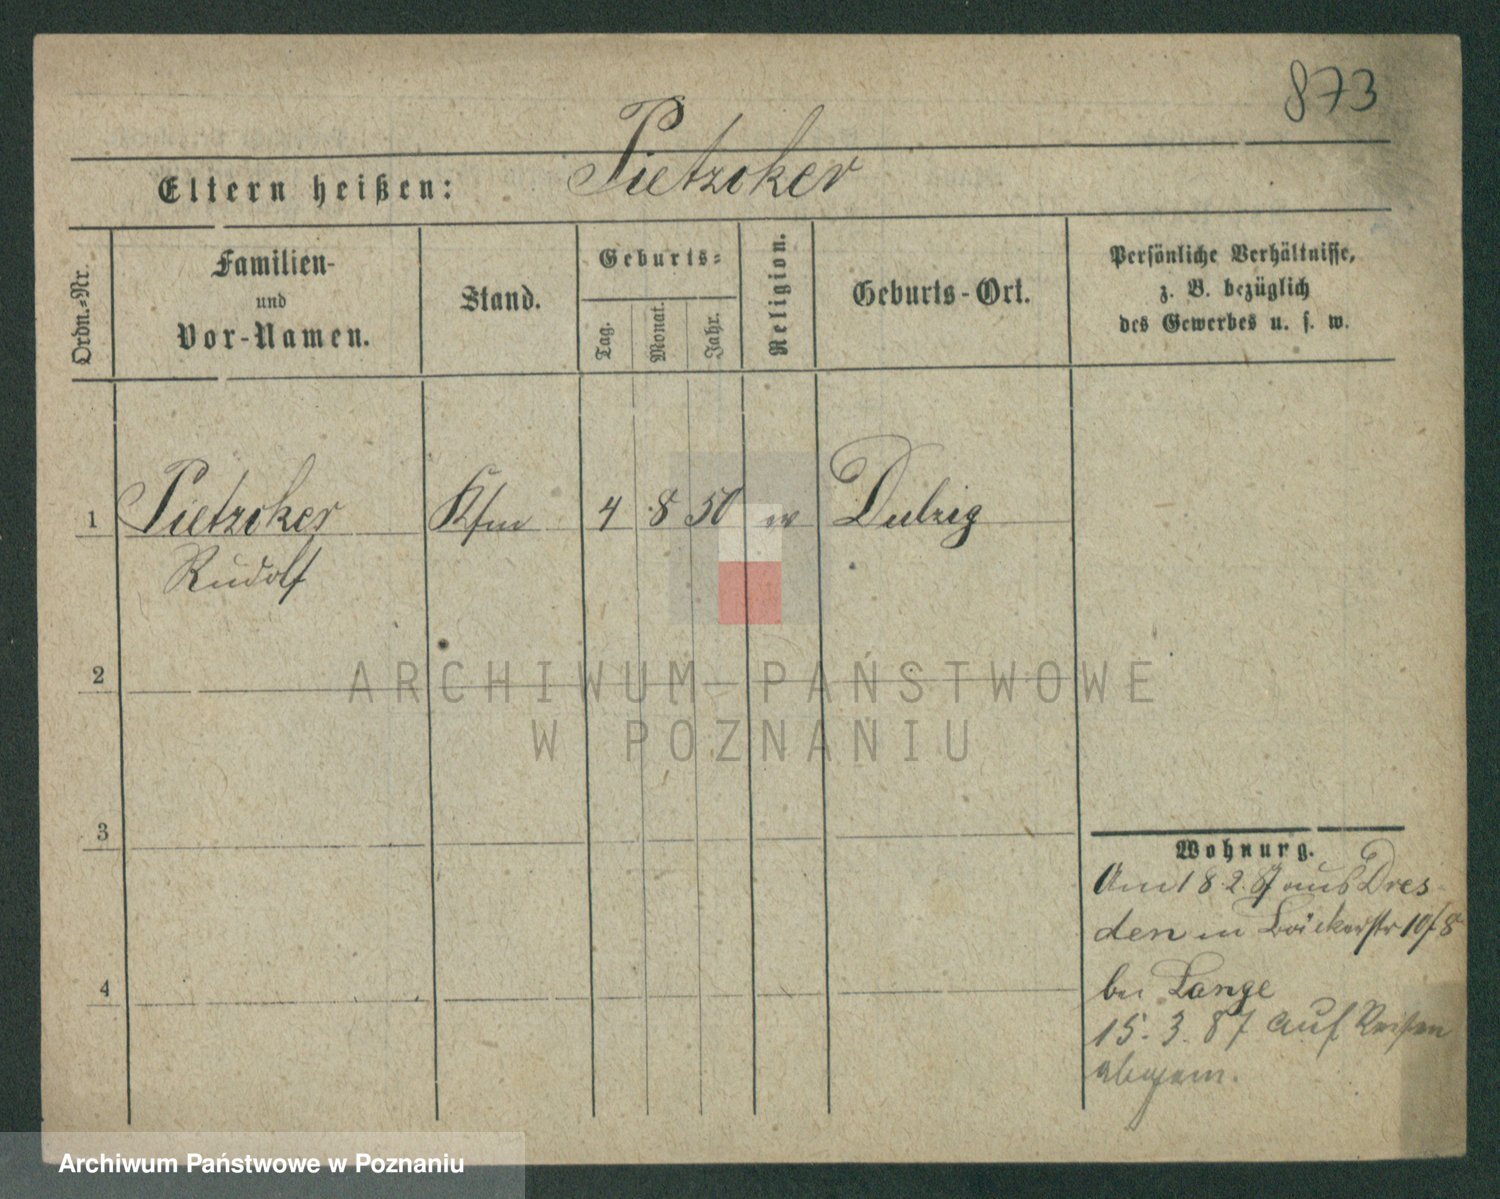 873
Pietzcker
Eltern heißen:
Ordn.-Nr.
Familien-
und
Vor-Namen.
Stand.
Geburts-
Tag.
Monat.
Jahr.
Religion.
Geburts-Ort.
Persönliche Verhältnisse,
z. B. bezüglich
des Gewerbes u. s. w.
1 Pietzcker Kfm 4 8 50
Rudolf
2
3
4
Wohnung.
Am 18.2.87 aus Dres-
den in Bäckerstr 10/8
bei Lange
15.3.87 auf Reisen
abgem.
ARCHIWUM PAŃSTWOWE
W POZNANIU
Archiwum Państwowe w Poznaniu